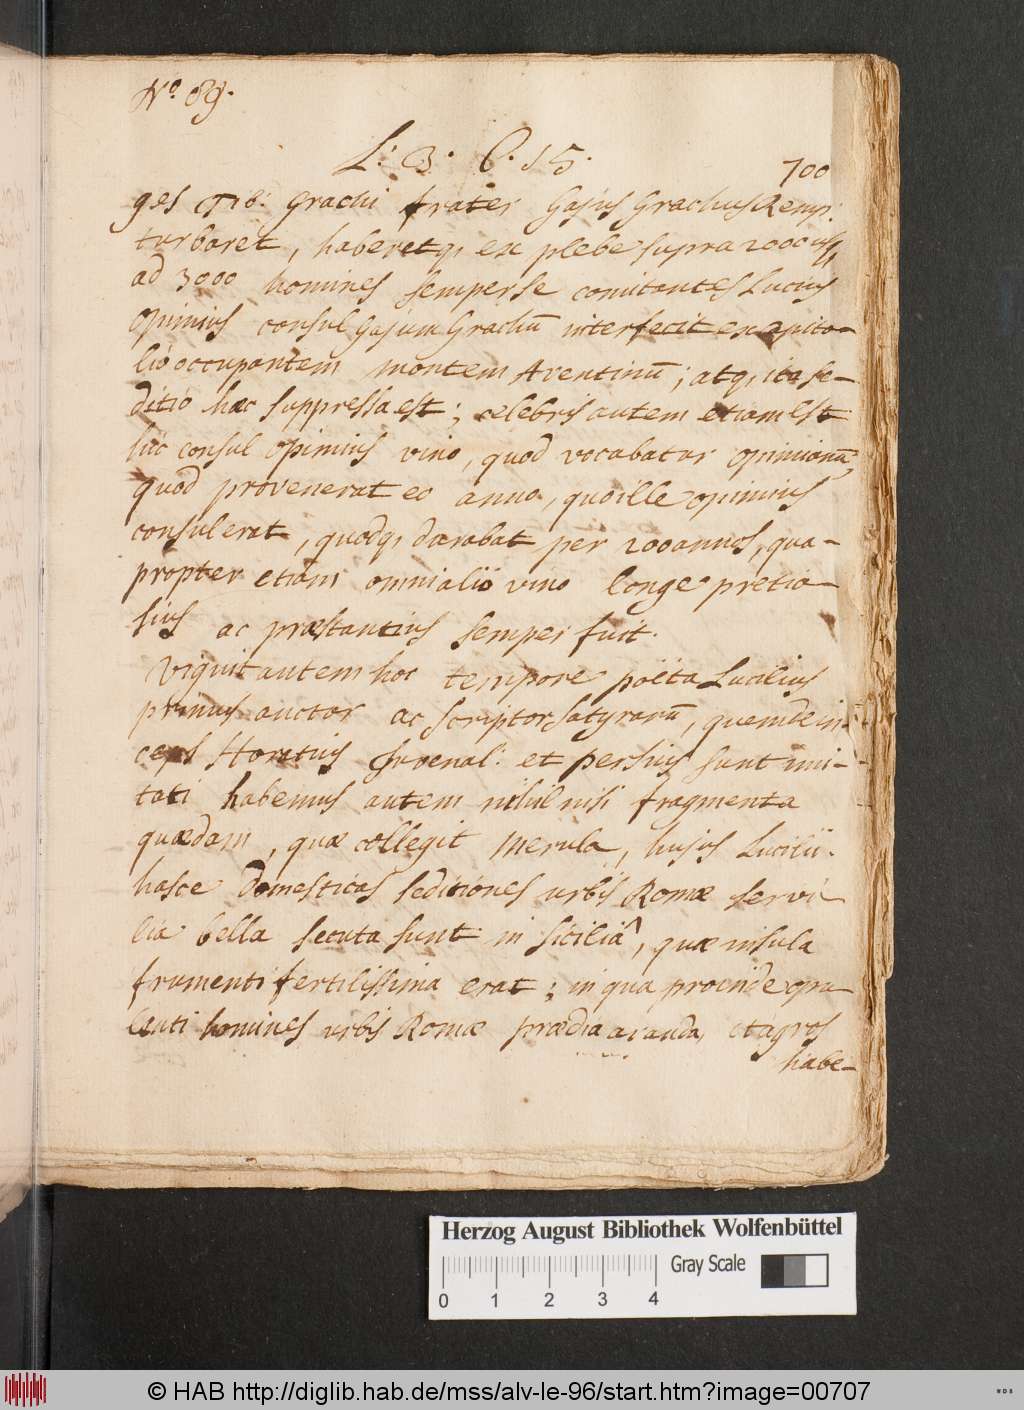 No. 89.
L: 3. C. 15.
700
ges Tib: Grachi frater Gajus Grachus Remp:
turbaret, haberetq, ex plebe supra 2000 usq,
ad 3000 homines semper se comitantes Lucius
Opimius consul Gajum Grachũ interfecit ex capito-
lio occupantem montem Aventinũ; atq, ita se-
ditio hæc suppressa est; celebris autem etiam est
hic consul Opimius vino, quod vocabatur opimianũ,
quod provenerat eo anno, quo ille Opimius
consul erat, quodq, durabat per 200 annos, qua-
propter etiam omni alio vino longe pretio-
sius ac præstantius semper fuit.
Viguit autem hoc tempore poëta Lucilius
primus auctor ac scriptor satyrarũ, quem dein-
ceps Horatius Juvenal: et Persius sunt imi-
tati habemus autem nihil nisi fragmenta
quædam, quæ collegit Merula, hujus Lucilii.
hasce domesticas seditiones urbis Romæ servi-
lia bella secuta sunt in Siciliâ, quæ insula
frumenti fertilissima erat; in qua proinde opu-
lenti homines urbis Romæ prædia aranda, et agros
habe-
Herzog August Bibliothek Wolfenbüttel
Gray Scale
0 1 2 3 4
© HAB http://diglib.hab.de/mss/alv-le-96/start.htm?image=00707